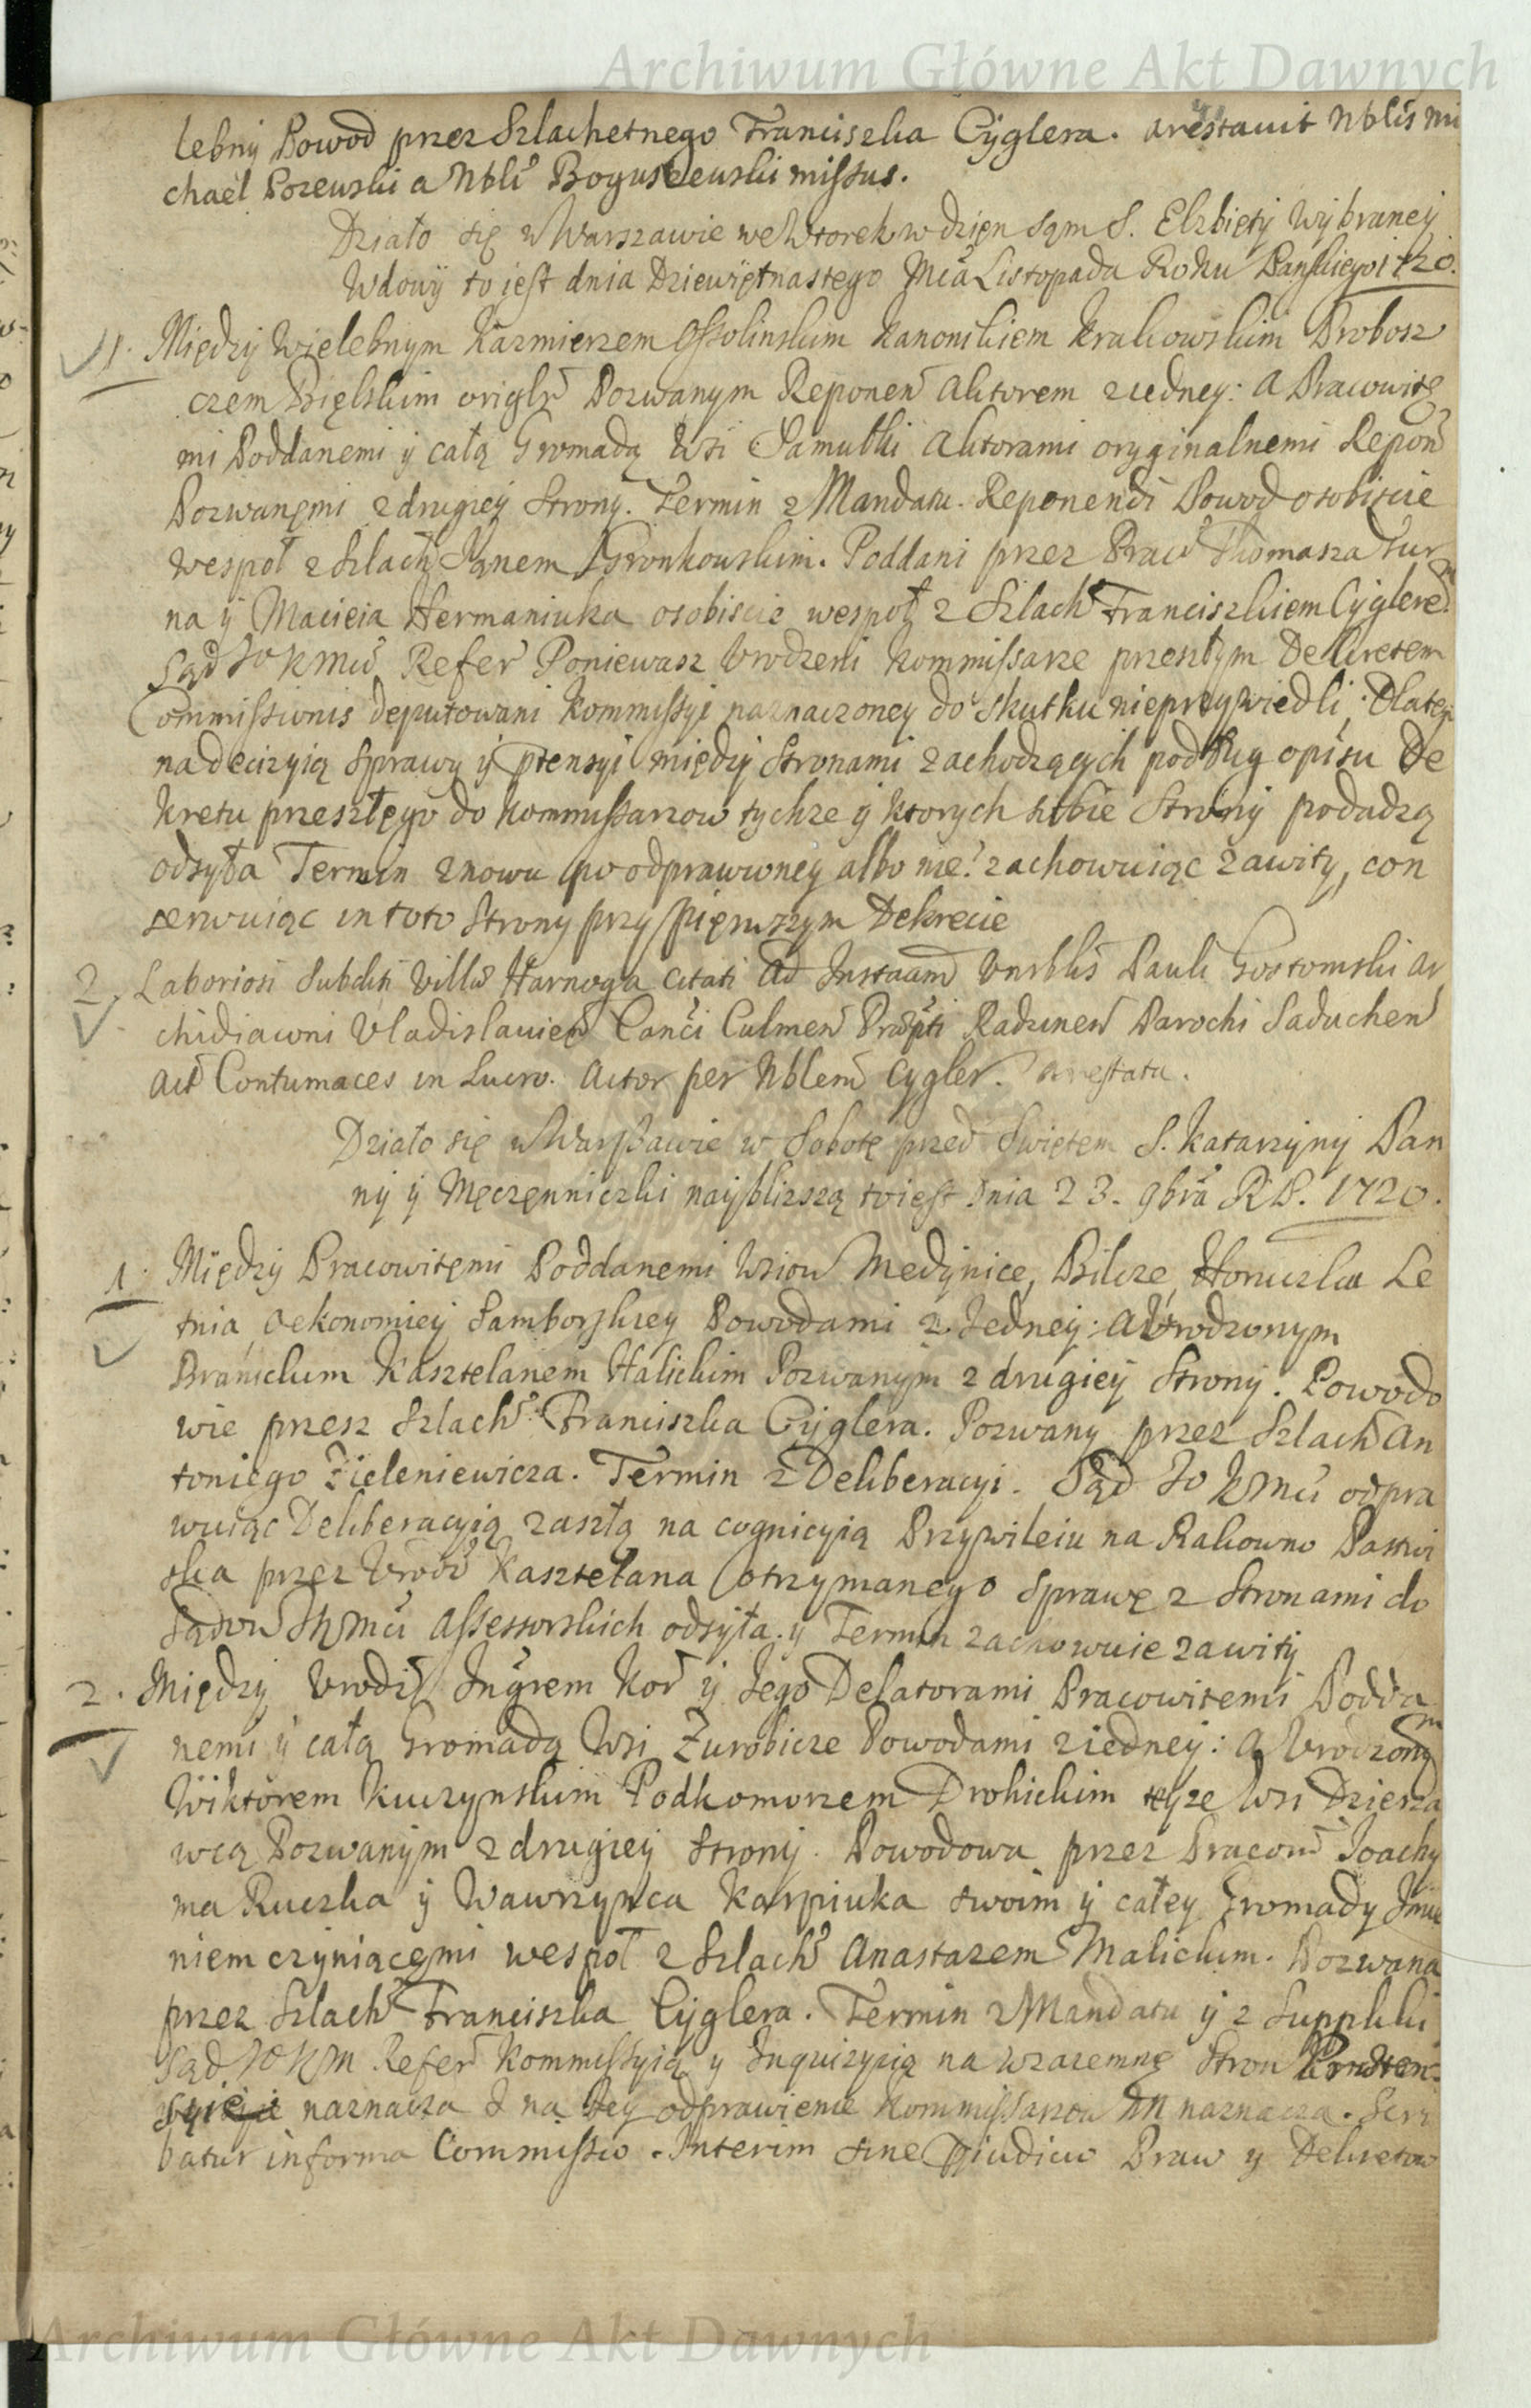 Archiwum Główne Akt Dawnych
lebny Powod przez Szlachetnego Franciszka Cyglera. arestavit Nblis Mi
chael Pozewski a Nbli Boguszewski missus.
Działo się w Warszawie we Wtorek w dzięn sąm S. Elzbięty Wybraney
Wdowy to iest dnia Dziewiętnastego Mca Listopada Roku Panskiego 1720.
1. Między Wielebnym Kazmierzem Ossolinskim Kanonikiem Krakowskim Probosz
czem Bięlskim origlr Pozwanym Reponen Aktorem z iedney: a Pracowitę
mi Poddanemi y całą Gromadą Wsi Samułki Aktorami oryginalnemi Repon
Pozwanęmi z drugiey Strony. Termin z Mandatu. Reponendi Powod osobiscie
wespoł z Szlach Janem Gronkowskim. Poddani przez Prac Thomasza Tur
na y Macieia Hermaniuka osobiscie wespoł z Szlach Franciszkiem Cyglerem
Sąd Jo K Mci Refer Poniewasz Urodzeni Kommissarze przeszłym Dekretem
Commissionis deputowani Kommissyi naznaczoney do skutku nieprzywiedli; Dlatego
na decizyią Sprawy y ptensyi między Stronami zachodzących podług opisu De
kretu przeszłęgo do Kommissarzow tychze y ktorych sobie Strony podadzą
odsyła Termin znowu po odprawioney albo nie? zachowuiąc zawity, con
serwuiąc in toto Strony przy pięrwszym Dekrecie
2. Laboriosi Subditi Villæ Harnoga citati ad Instaam Vnrblis Pauli Gostomski Ar
chidiaconi Vladislavien Canci Culmen Præpti Radzinen Parochi Saduchen
Act Contumaces in Lucro. Actor per Nblem Cygler. arrestata.
Działo się w Warszawie w Sobotę przed Swiętem S. Katarzyny Pan
ny y Męczęnniczki nayblizszą to iest dnia 23. 9bra R.P. 1720.
1. Między Pracowitęmi Poddanemi Wsiow Medynice, Bilcze, Horuczka Le
tnia, Oekonomiey Samborskiey Powodami z Jedney: a Urodzonym
Branickim Kasztelanem Halickim Pozwanym z drugiey Strony. Powodo
wie przesz Szlach Franciszka Cyglera. Pozwany przez Szlach An
toniego Zieleniewicza. Termin z Deliberacyi. Sąd Jo K Mci odpra
wuiąc Deliberacyią zaszłą na cognicyią Przywileiu na Rakowno Pastwi
ska przez Urodz Kasztelana otrzymanego Sprawę z Stronami do
Sądow JKMci Assessorskich odsyła. y Termin zachowuie zawity
2. Między Urodz Ingrem Kor y Jego Delatorami Pracowitemi Podda
nemi y całą Gromadą Wsi Zurobicze Powodami z iedney: a Urodzonym
Wiktorem Kuczynskim Podkomorzem Drohickim teyze Wsi Dzierza
wcą Pozwanym z drugiey Strony. Powodowa przez Pracow Joachy
ma Ruczka y Wawrzynca Karpiuka swoim y całey Gromady Imie
niem czyniącęmi wespoł z Szlach Anastazem Malickim. Pozwana
przez Szlach Franciszka Cyglera. Termin z Mandatu y z Suppliki
Sąd Jo K M Refer Kommissyią y Inquizycią na wzaiemnę Stron
naznacza I na tey odprawienie Kommissarzow NN naznacza. Scri
batur in forma Commissio. Interim sine pjudicio Praw y Dekretow
Archiwum Główne Akt Dawnych